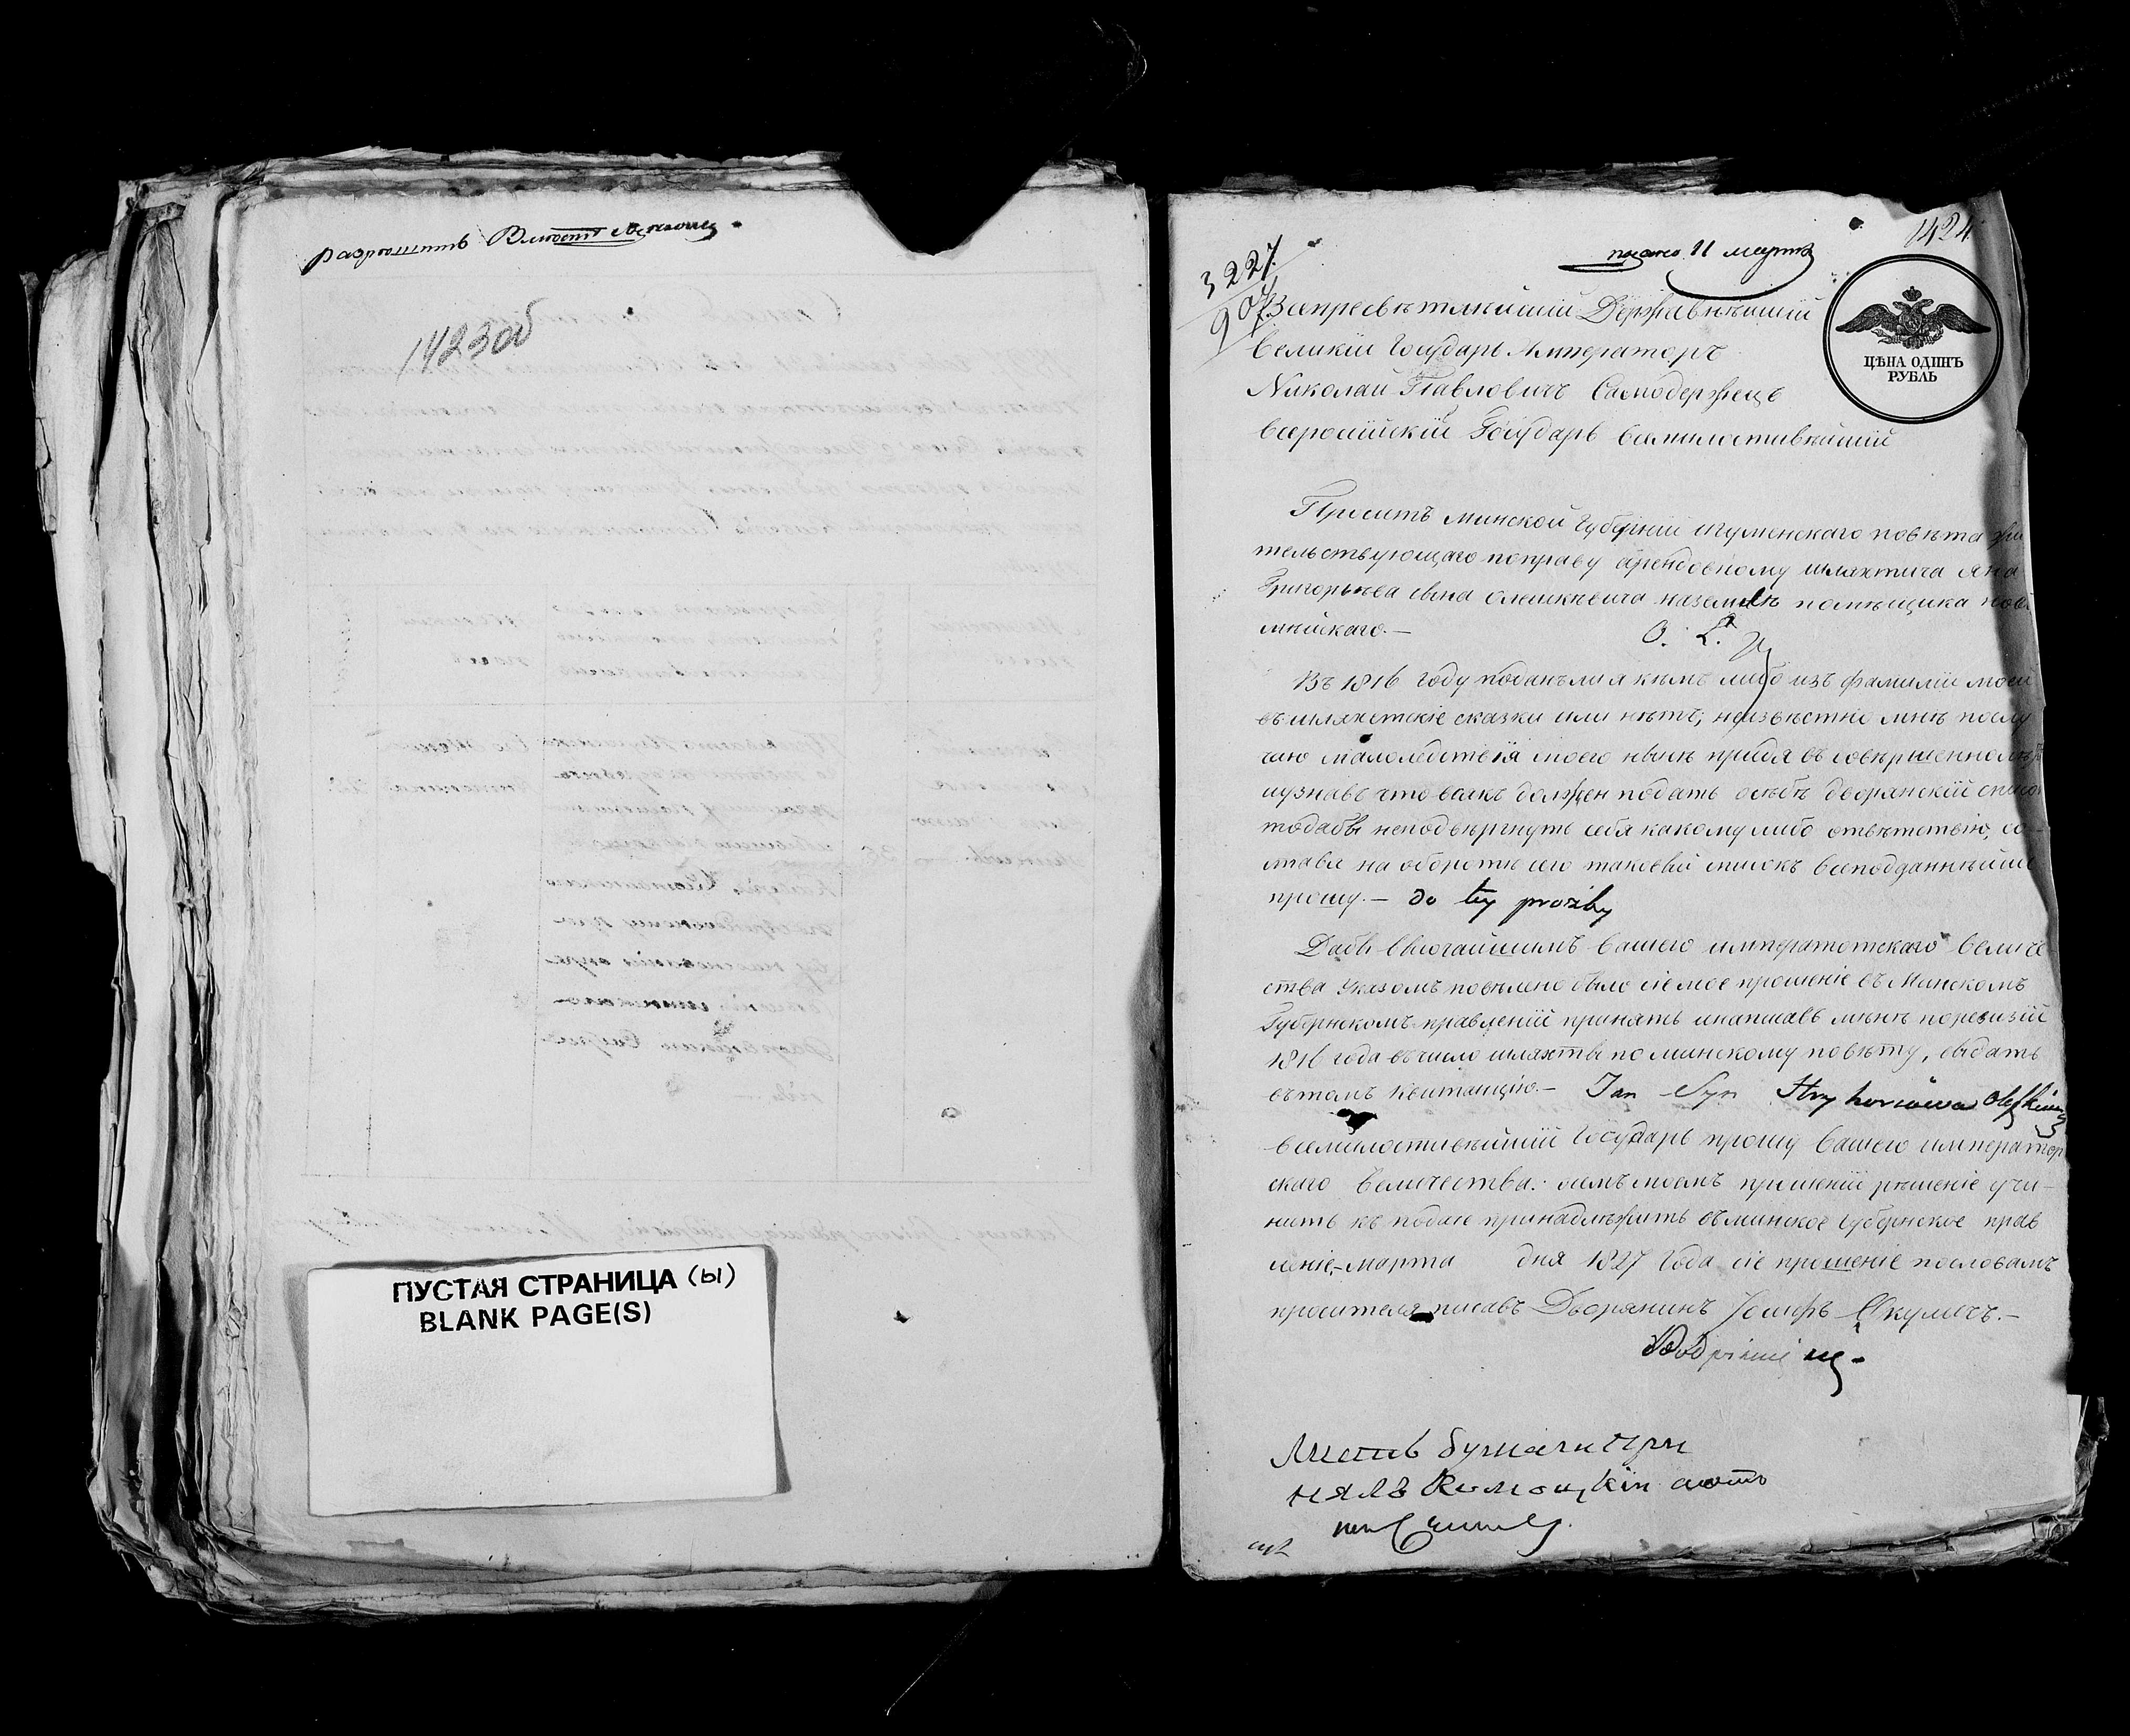 1423об
ПУСТАЯ СТРАНИЦА (ы)
BLANK PAGE(S)
1424
3227
907
подано 11 марта
ЦѢНА ОДИНЪ
РУБЛЬ
Всепресвѣтлѣйшій Державнѣйшій
Великій Государь Императоръ
Николай Павловичъ Самодержецъ
Всеросійскій Государь Всемилостивѣйшій
Проситъ Минской Губерніи Игуменскаго повѣта жи
тельствующаго поправу арендовному шляхтича Яна
Григорьева сына Олешкѣвича наземлѣ помѣщика
В 1816 году поданъли я кѣмъ либо изъ фамиліи моей
въ шляхетскіе сказки или нѣтъ; неизвѣстно мнѣ послу
чаю малолѣтствія моего нынѣ прійдя въ совѣршенно
иузнавъ что долженъ подать осѣбѣ дворянскій
тодабы неподвѣргнуть себя какому либо отвѣтствію, со
ставя на оборотѣ сего таковый списокъ Всеподданнѣйши
прошу.— do tey prozby
Дабы Высочайшимъ Вашего императотскаго Величе
ства Указомъ повѣлено было сіе мое прошеніе въ Минскомъ
Губернскомъ правленіи принять инаписавъ мѣнѣ поревизіи
1816 года въ число шляхты по минскому повѣту, выдать
вътомъ квитанцію.— Jan Syn Hryhoriowa Oleszkiewicz
Всемилостивѣйшій Государь прошу Вашего император
скаго Величества: осемъ моемъ прошеніи рѣшеніе учи-
нить къ подаче принадлѣжитъ въ минское Губернское прав
леніе,- марта дня 1827 года сіе прошеніе пословамъ
просителя писавъ Дворянинъ Іосифъ Окуличъ.—
Листъ бумаги при
нялъ